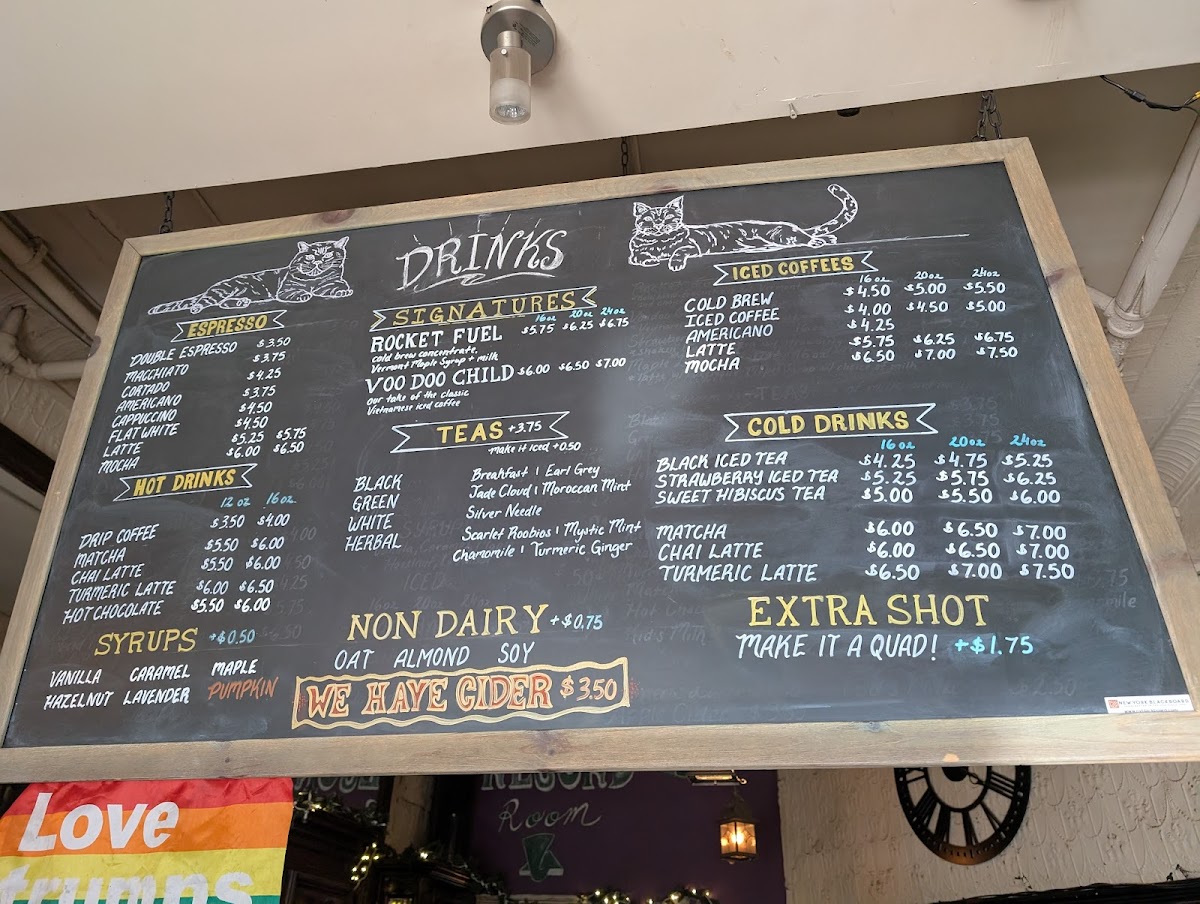 DRINKS
ESPRESSO
DOUBLE ESPRESSO $3.50
MACCHIATO $3.75
CORTADO $4.25
AMERICANO $3.75
CAPPUCCINO $4.50
FLAT WHITE $4.50
LATTE $5.25 $5.75
MOCHA $6.00 $6.50
HOT DRINKS
12 oz 16 oz
DRIP COFFEE $3.50 $4.00
MATCHA $5.50 $6.00
CHAI LATTE $5.50 $6.00
TURMERIC LATTE $6.00 $6.50
HOT CHOCOLATE $5.50 $6.00
SYRUPS +$0.50
VANILLA CARAMEL MAPLE
HAZELNUT LAVENDER PUMPKIN
SIGNATURES
16 oz 20 oz 24 oz
ROCKET FUEL $5.75 $6.25 $6.75
cold brew concentrate,
Vermont Maple Syrup + milk
VOO DOO CHILD $6.00 $6.50 $7.00
our take of the classic
Vietnamese iced coffee
TEAS +3.75
make it iced +0.50
BLACK Breakfast | Earl Grey
GREEN Jade Cloud | Moroccan Mint
WHITE Silver Needle
HERBAL Scarlet Roobios | Mystic Mint
Chamomile | Turmeric Ginger
NON DAIRY +$0.75
OAT ALMOND SOY
WE HAVE CIDER $3.50
ICED COFFEES
16 oz 20 oz 24 oz
COLD BREW $4.50 $5.00 $5.50
ICED COFFEE $4.00 $4.50 $5.00
AMERICANO $4.25
LATTE $5.75 $6.25 $6.75
MOCHA $6.50 $7.00 $7.50
COLD DRINKS
16 oz 20 oz 24 oz
BLACK ICED TEA $4.25 $4.75 $5.25
STRAWBERRY ICED TEA $5.25 $5.75 $6.25
SWEET HIBISCUS TEA $5.00 $5.50 $6.00
MATCHA $6.00 $6.50 $7.00
CHAI LATTE $6.00 $6.50 $7.00
TURMERIC LATTE $6.50 $7.00 $7.50
EXTRA SHOT
MAKE IT A QUAD! +$1.75
NEW YORK BLACKBOARD
RECORD
Room
Love
trumps